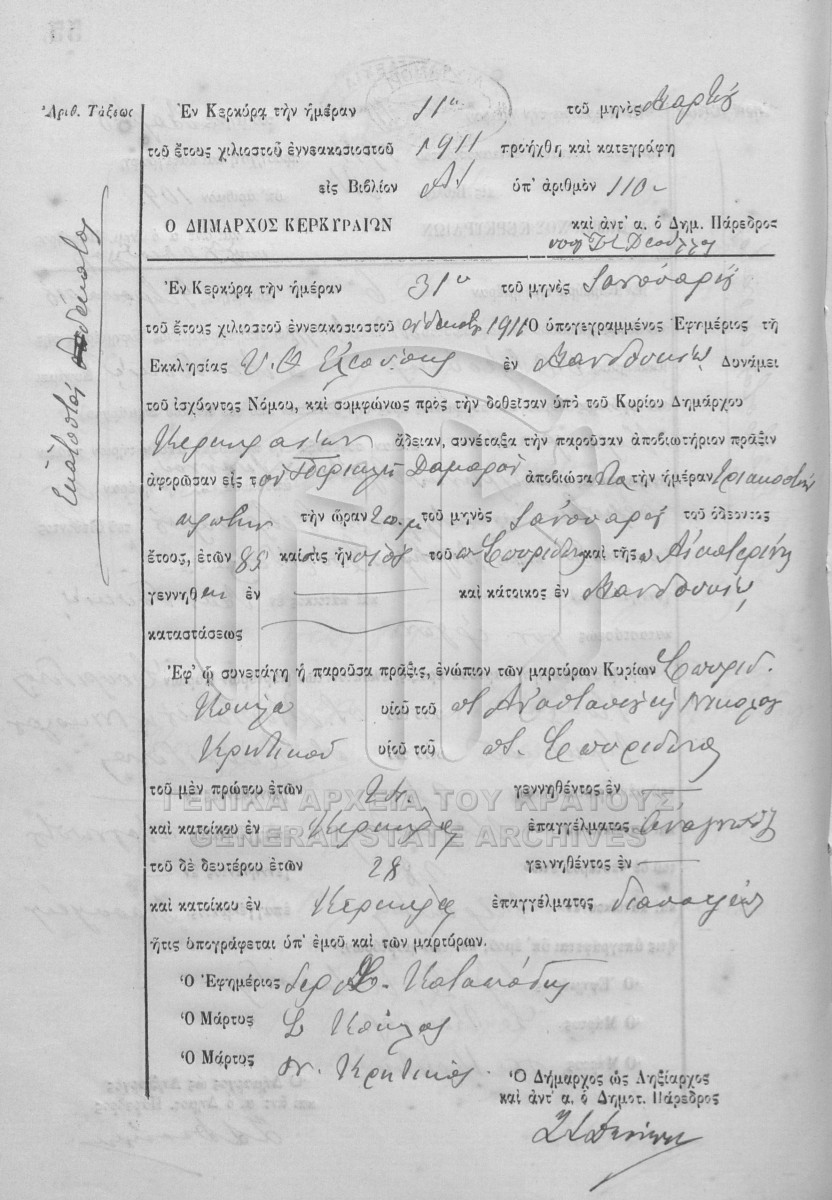 Ἀριθ. Τάξεως
Ἑκατοστὸς δέκατος
Ἐν Κερκύρᾳ τὴν ἡμέραν 11ην τοῦ μηνὸς Μαρτίου
τοῦ ἔτους χιλιοστοῦ ἐννεακοσιοστοῦ 1911 προήχθη καὶ κατεγράφη
εἰς Βιβλίον Α1 ὑπ' ἀριθμὸν 110
Ο ΔΗΜΑΡΧΟΣ ΚΕΡΚΥΡΑΙΩΝ καὶ ἀντ' α. ὁ Δημ. Πάρεδρος
Ἐν Κερκύρᾳ τὴν ἡμέραν 31ην τοῦ μηνὸς Ἰανουαρίου
τοῦ ἔτους χιλιοστοῦ ἐννεακοσιοστοῦ 1911 Ὁ ὑπογεγραμμένος Ἐφημέριος τῆς
Ἐκκλησίας Υ. Θ. Ἐλεούσης ἐν Μανδουκίῳ Δυνάμει
τοῦ ἰσχύοντος Νόμου, καὶ συμφώνως πρὸς τὴν δοθεῖσαν ὑπὸ τοῦ Κυρίου Δημάρχου
Κερκυραίων ἄδειαν, συνέταξα τὴν παροῦσαν ἀποβιωτήριον πρᾶξιν
ἀφορῶσαν εἰς τὸν Περικλῆ ἀποβιώσαντα τὴν ἡμέραν τριακοστὴν
πρώτην τὴν ὥραν 2 π.μ. τοῦ μηνὸς Ἰανουαρίου τοῦ ὁδεύοντος
ἔτους, ἐτῶν 85 καὶ τις ἦν υἱὸς τοῦ π. Σπυρίδωνος καὶ τῆς Αἰκατερίνης
γεννηθεὶς ἐν καὶ κάτοικος ἐν Μανδουκίῳ
καταστάσεως
Ἐφ' ᾧ συνετάγη ἡ παροῦσα πρᾶξις, ἐνώπιον τῶν μαρτύρων Κυρίων Σπυρίδ.
Κούλα υἱοῦ τοῦ π. Ἀναστασίου καὶ Νικολάου
Κρητικοῦ υἱοῦ τοῦ π. Σπυρίδωνος
τοῦ μὲν πρώτου ἐτῶν γεννηθέντος ἐν
καὶ κατοίκου ἐν Κερκύρᾳ ἐπαγγέλματος ἀναγνώστου
τοῦ δὲ δευτέρου ἐτῶν 28 γεννηθέντος ἐν
καὶ κατοίκου ἐν Κερκύρᾳ ἐπαγγέλματος
ἥτις ὑπογράφεται ὑπ' ἐμοῦ καὶ τῶν μαρτύρων.
Ὁ Ἐφημέριος Ἱερ.
Ὁ Μάρτυς Σ Κούλας
Ὁ Μάρτυς Ν. Κρητικὸς
Ὁ Δήμαρχος ὡς Ληξίαρχος
καὶ ἀντ' α. ὁ Δημοτ. Πάρεδρος
ΓΕΝΙΚΑ ΑΡΧΕΙΑ ΤΟΥ ΚΡΑΤΟΥΣ
GENERAL STATE ARCHIVES